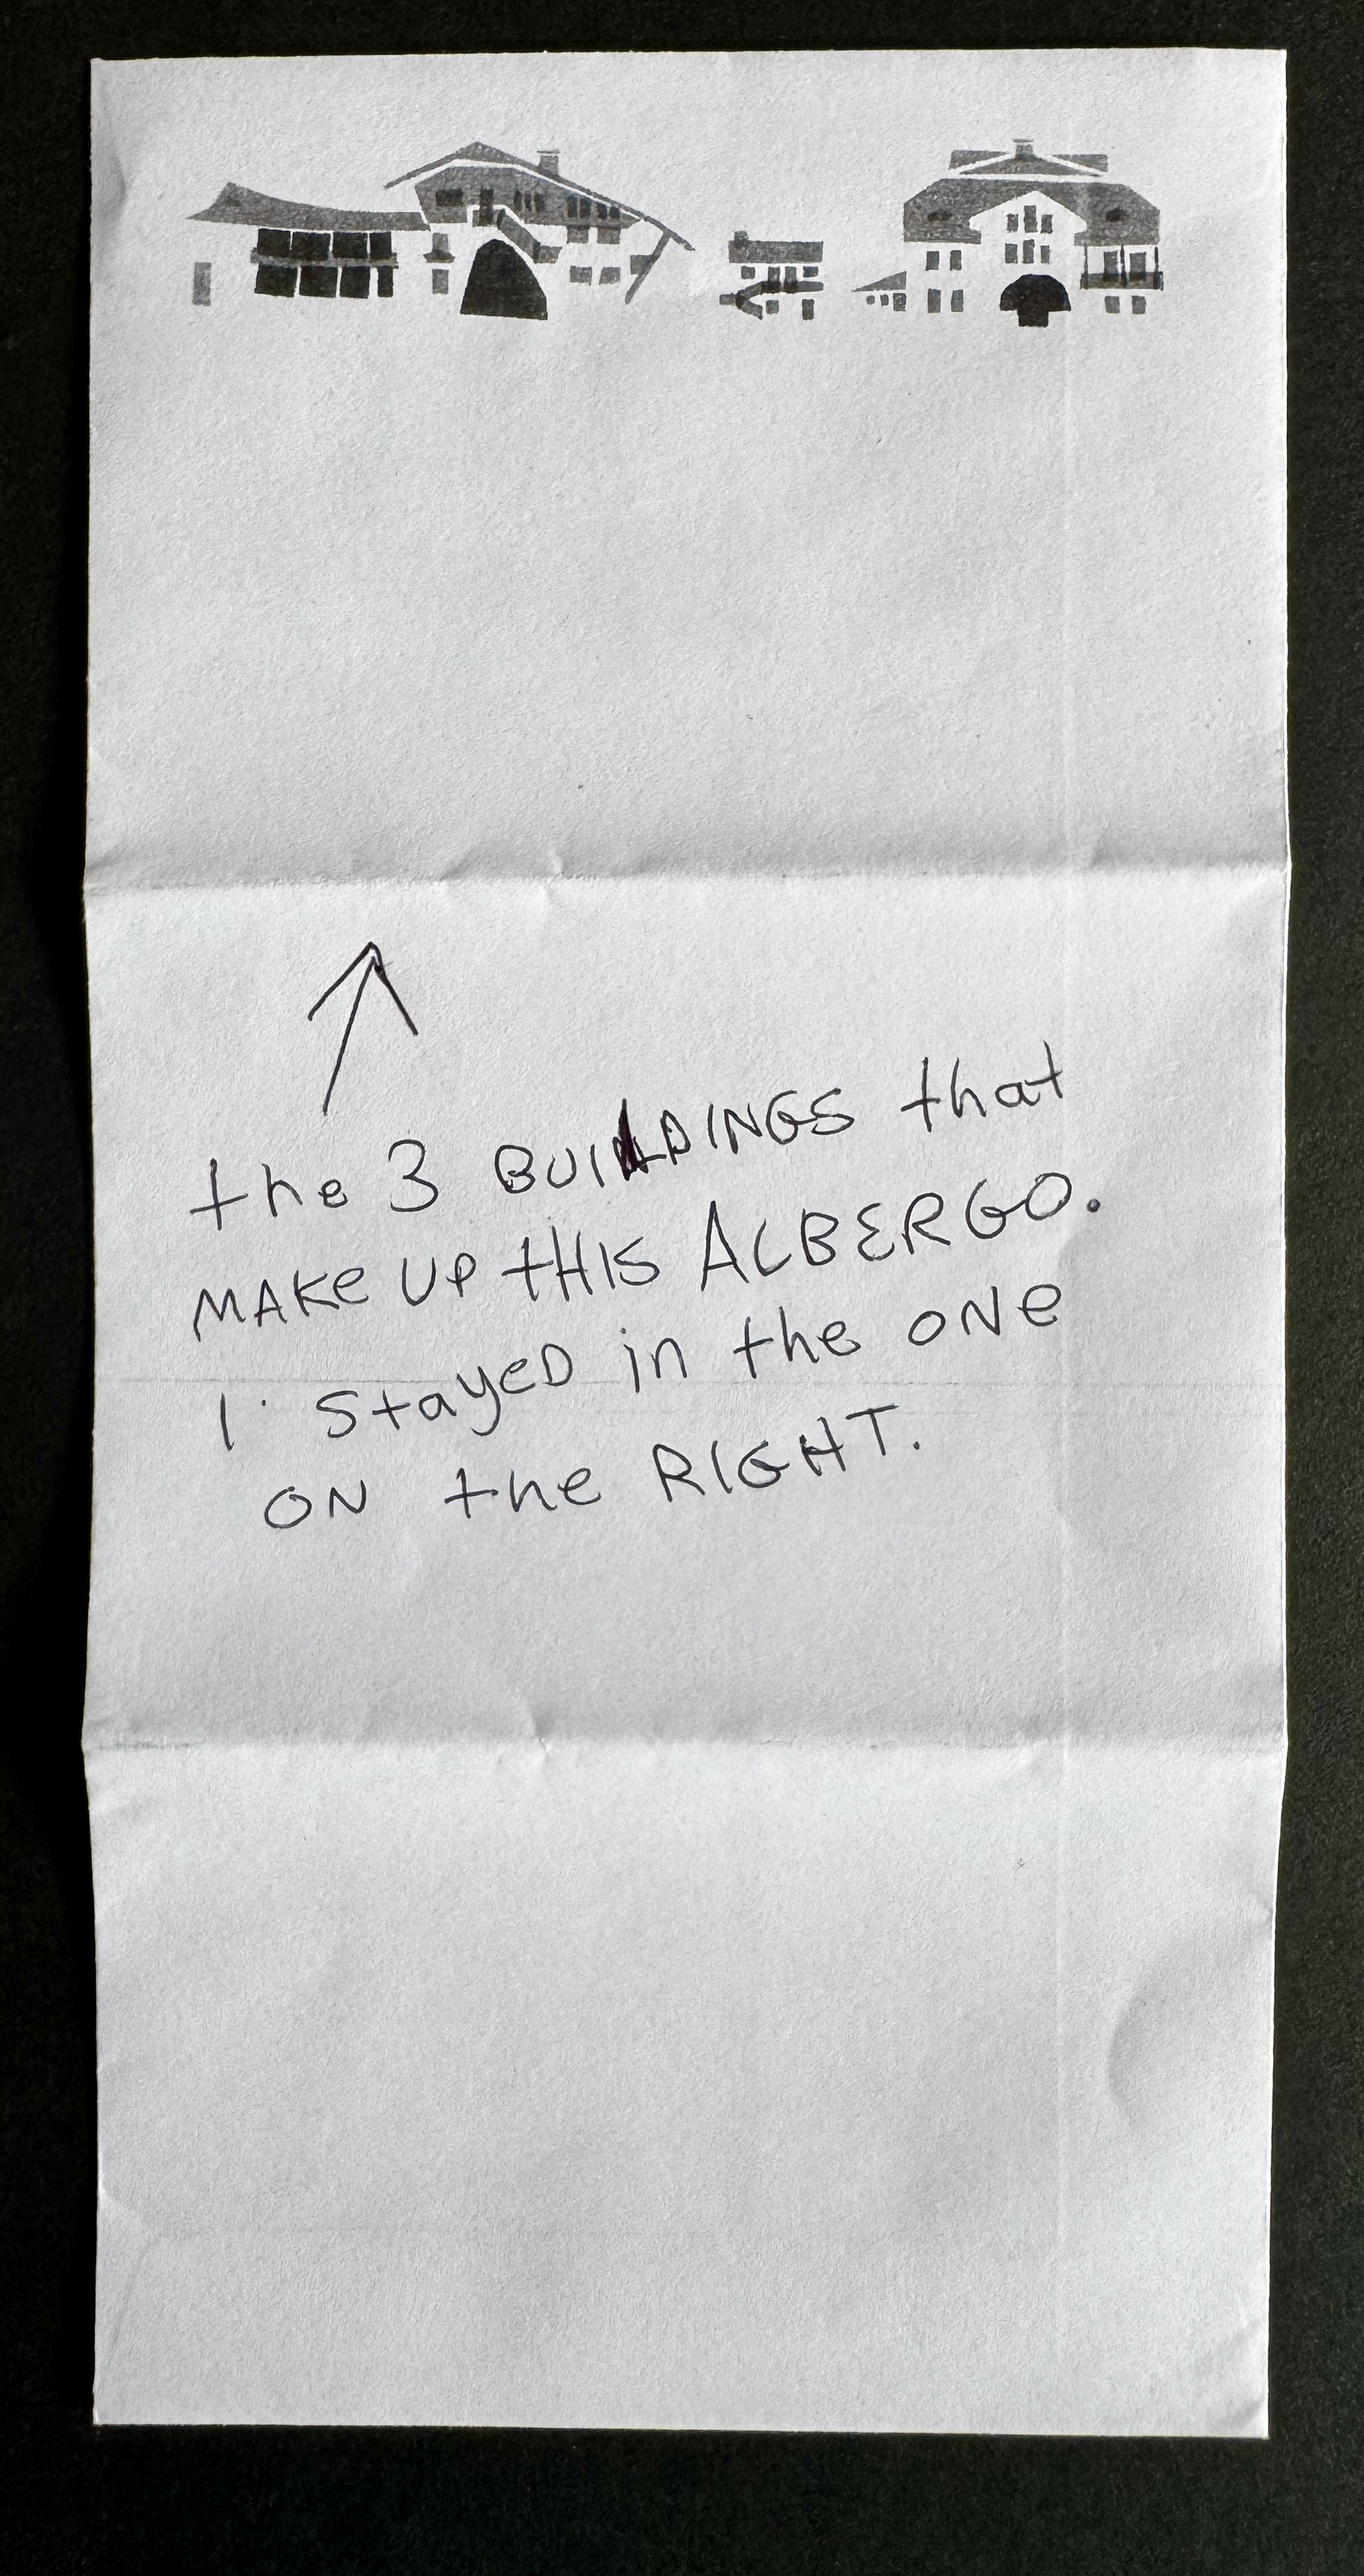 the 3 BUILDINGS that
MAKe UP tHIS ALBERGO.
I stayeD in the ONe
ON the RIGHT.